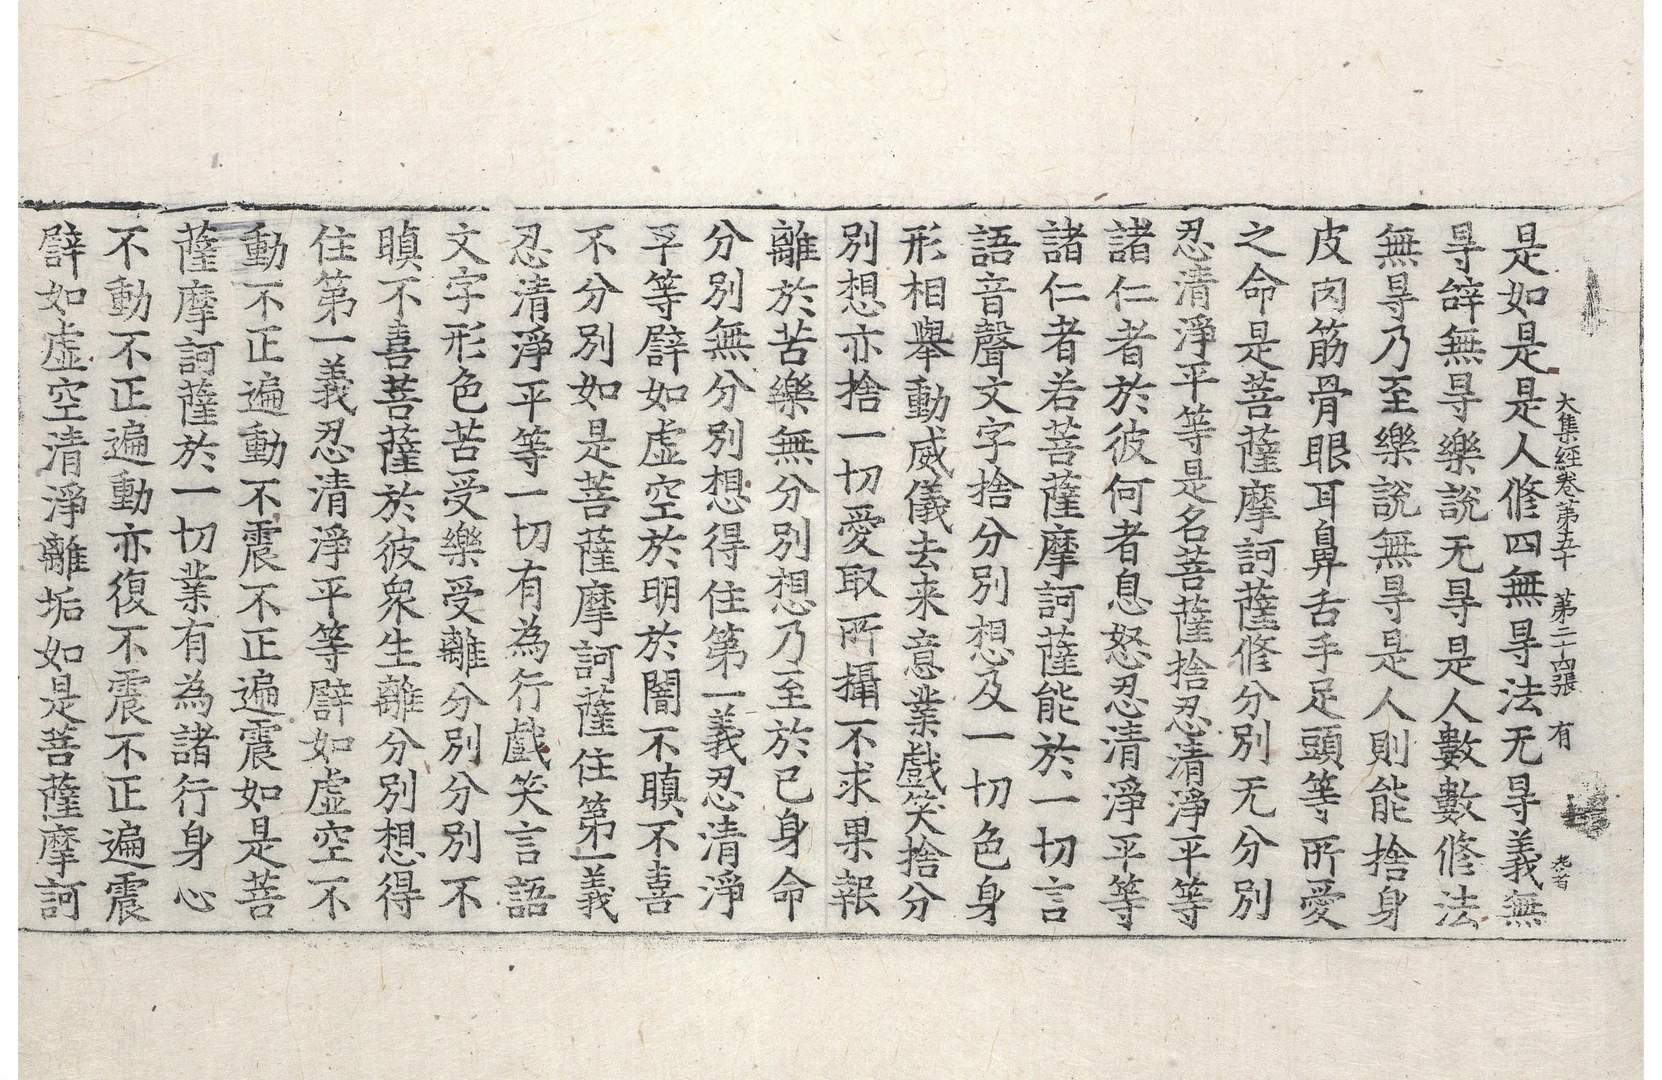 大集経卷第五十 第二十四張 有
是如是是人修四無㝵法无㝵義無
㝵辞無㝵樂說无㝵是人數數修法
無㝵乃至樂說無㝵是人則能捨身
皮肉筋骨眼耳鼻舌手足頭等所愛
之命是菩薩摩訶薩修分別无分別
忍清淨平等是名菩薩捨忍清淨平等
諸仁者於彼何者息怒忍清淨平等
諸仁者若菩薩摩訶薩能於一切言
語音聲文字捨分別想及一切色身
形相舉動威儀去来意業戲笑捨分
別想亦捨一切愛取所攝不求果報
離於苦樂無分別想乃至於己身命
分別無分別想得住第一義忍清淨
平等譬如虛空於明於闇不瞋不喜
不分別如是菩薩摩訶薩住第一義
忍清淨平等一切有為行戲笑言語
文字形色苦受樂受離分別分別不
瞋不喜菩薩於彼眾生離分別想得
住第一義忍清淨平等譬如虛空不
動不正遍動不震不正遍震如是菩
薩摩訶薩於一切業有為諸行身心
不動不正遍動亦復不震不正遍震
譬如虛空清淨離垢如是菩薩摩訶